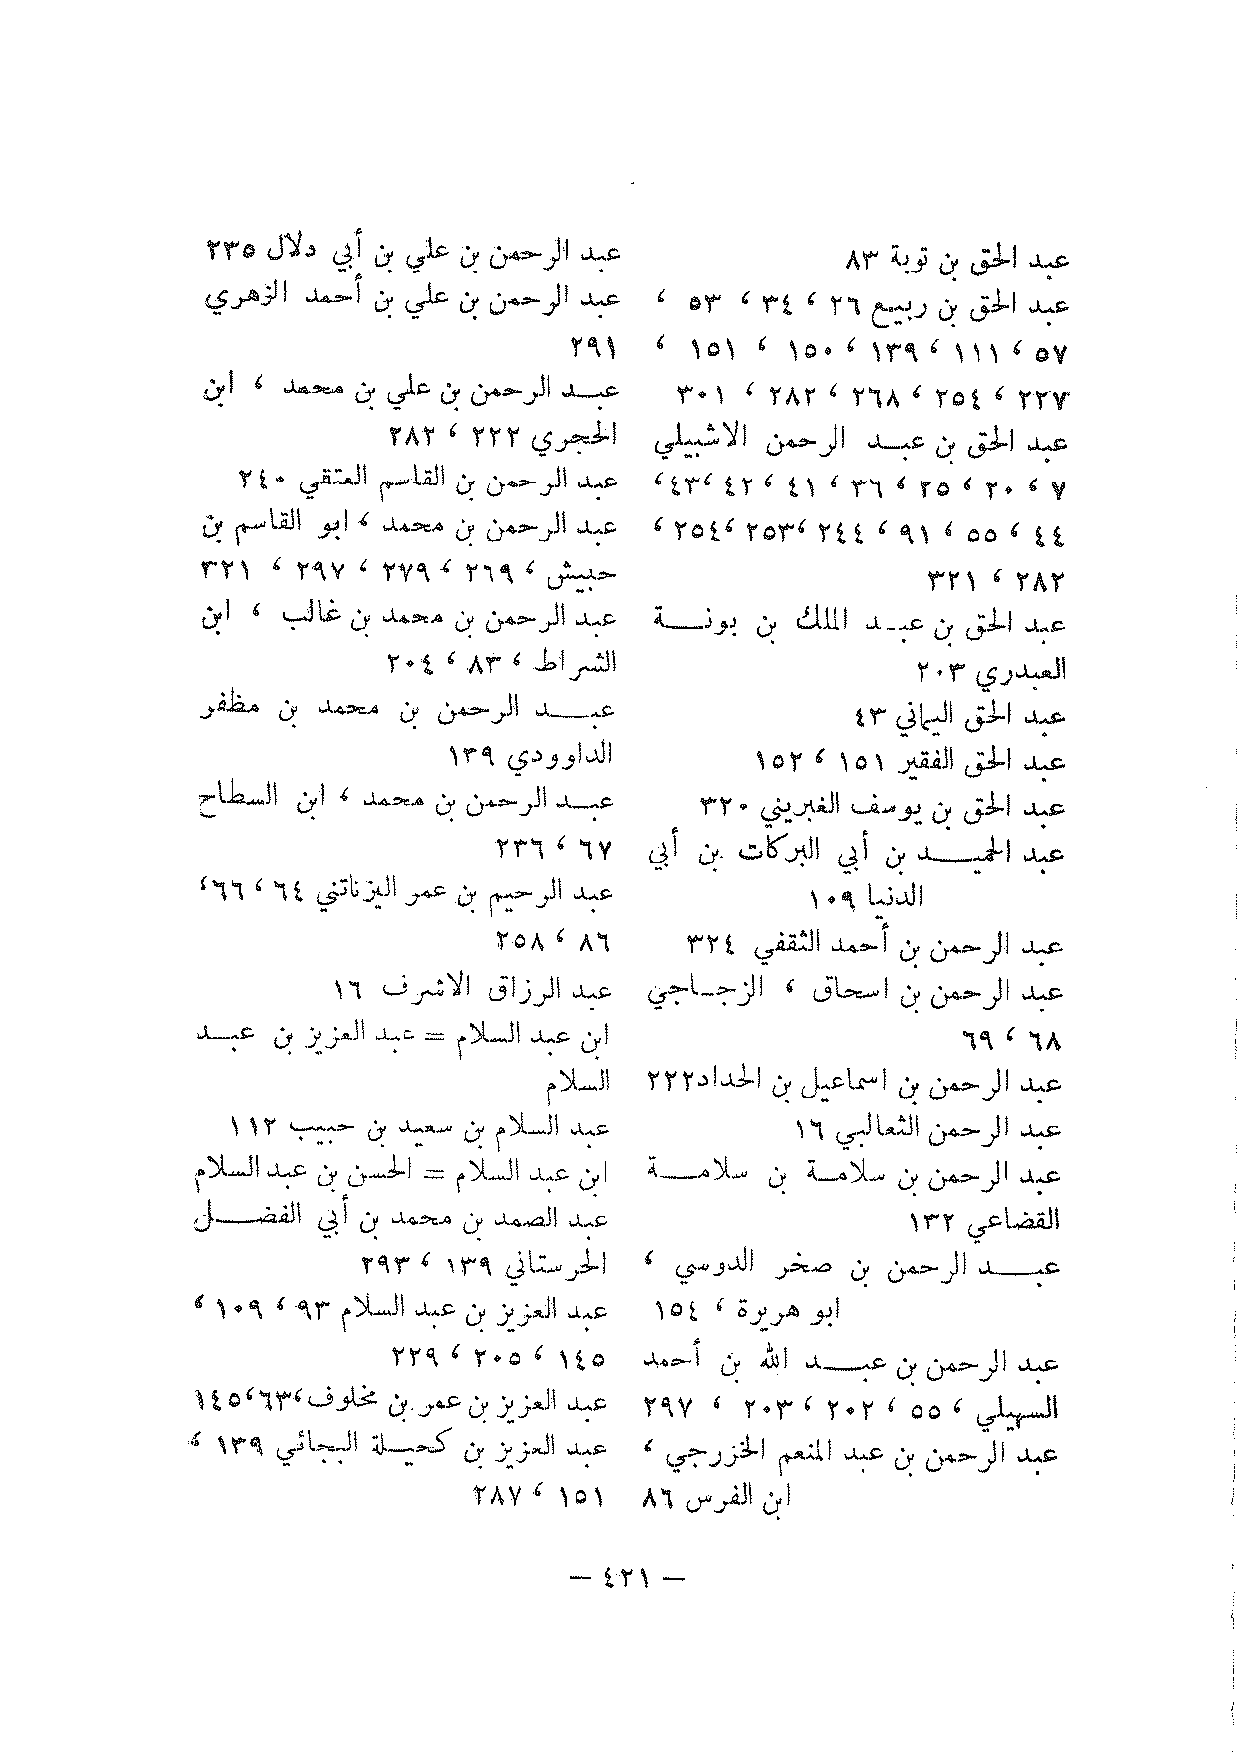 عبد الحق بن توبة ٨٣
عبد الحق بن ربيع ٢٦ ، ٣٤ ، ٥٣ ،
٥٧ ، ١١١ ، ١٣٩ ، ١٥٠ ، ١٥١ ،
٢٢٧ ، ٢٥٤ ، ٢٦٨ ، ٢٨٢ ، ٣٠١
عبد الحق بن عبد الرحمن الاشبيلي
٧ ، ٢٠ ، ٢٥ ، ٣٦ ، ٤١ ، ٤٢ ، ٤٣ ،
٤٤ ، ٥٥ ، ٩١ ، ٢٤٤ ، ٢٥٣ ، ٢٥٤ ،
٢٨٢ ، ٣٢١
عبد الحق بن عبد الملك بن بونة
العبدري ٢٠٣
عبد الحق اليماني ٤٣
عبد الحق الفقير ١٥١ ، ١٥٢
عبد الحق بن يوسف الغبريني ٣٢٠
عبد الحميد بن أبي البركات بن أبي
الدنيا ١٠٩
عبد الرحمن بن أحمد الثقفي ٣٢٤
عبد الرحمن بن اسحاق ، الزجاجي
٦٨ ، ٦٩
عبد الرحمن بن اسماعيل بن الحداد ٢٢٢
عبد الرحمن الثعالبي ١٦
عبد الرحمن بن سلامة بن سلامة
القضاعي ١٣٢
عبد الرحمن بن صخر الدوسي ،
ابو هريرة ، ١٥٤
عبد الرحمن بن عبد الله بن أحمد
السهيلي ، ٥٥ ، ٢٠٢ ، ٢٠٣ ، ٢٩٧
عبد الرحمن بن عبد المنعم الخزرجي ،
ابن الفرس ٨٦
عبد الرحمن بن علي بن أبي دلال ٢٣٥
عبد الرحمن بن علي بن أحمد الزهري
٢٩١
عبد الرحمن بن علي بن محمد ، ابن
الحجري ٢٢٢ ، ٢٨٢
عبد الرحمن بن القاسم العتقي ٢٤٠
عبد الرحمن بن محمد ، ابو القاسم بن
حبيش ، ٢٦٩ ، ٢٧٩ ، ٢٩٧ ، ٣٢١
عبد الرحمن بن محمد بن غالب ، ابن
الشراط ، ٨٣ ، ٢٠٤
عبد الرحمن بن محمد بن مظفر
الداوودي ١٣٩
عبد الرحمن بن محمد ، ابن السطاح
٦٧ ، ٢٣٦
عبد الرحيم بن عمر اليزناتني ٦٤ ، ٦٦ ،
٨٦ ، ٢٥٨
عبد الرزاق الاشرف ١٦
ابن عبد السلام = عبد العزيز بن عبد
السلام
عبد السلام بن سعيد بن حبيب ١١٢
ابن عبد السلام = الحسن بن عبد السلام
عبد الصمد بن محمد بن أبي الفضل
الحرستاني ١٣٩ ، ٢٩٣
عبد العزيز بن عبد السلام ٩٣ ، ١٠٩ ،
١٤٥ ، ٢٠٥ ، ٢٢٩
عبد العزيز بن عمر بن مخلوف ، ٦٣ ، ١٤٥
عبد العزيز بن كحيلة البجائي ١٣٩ ،
١٥١ ، ٢٨٧
— ٤٢١ —